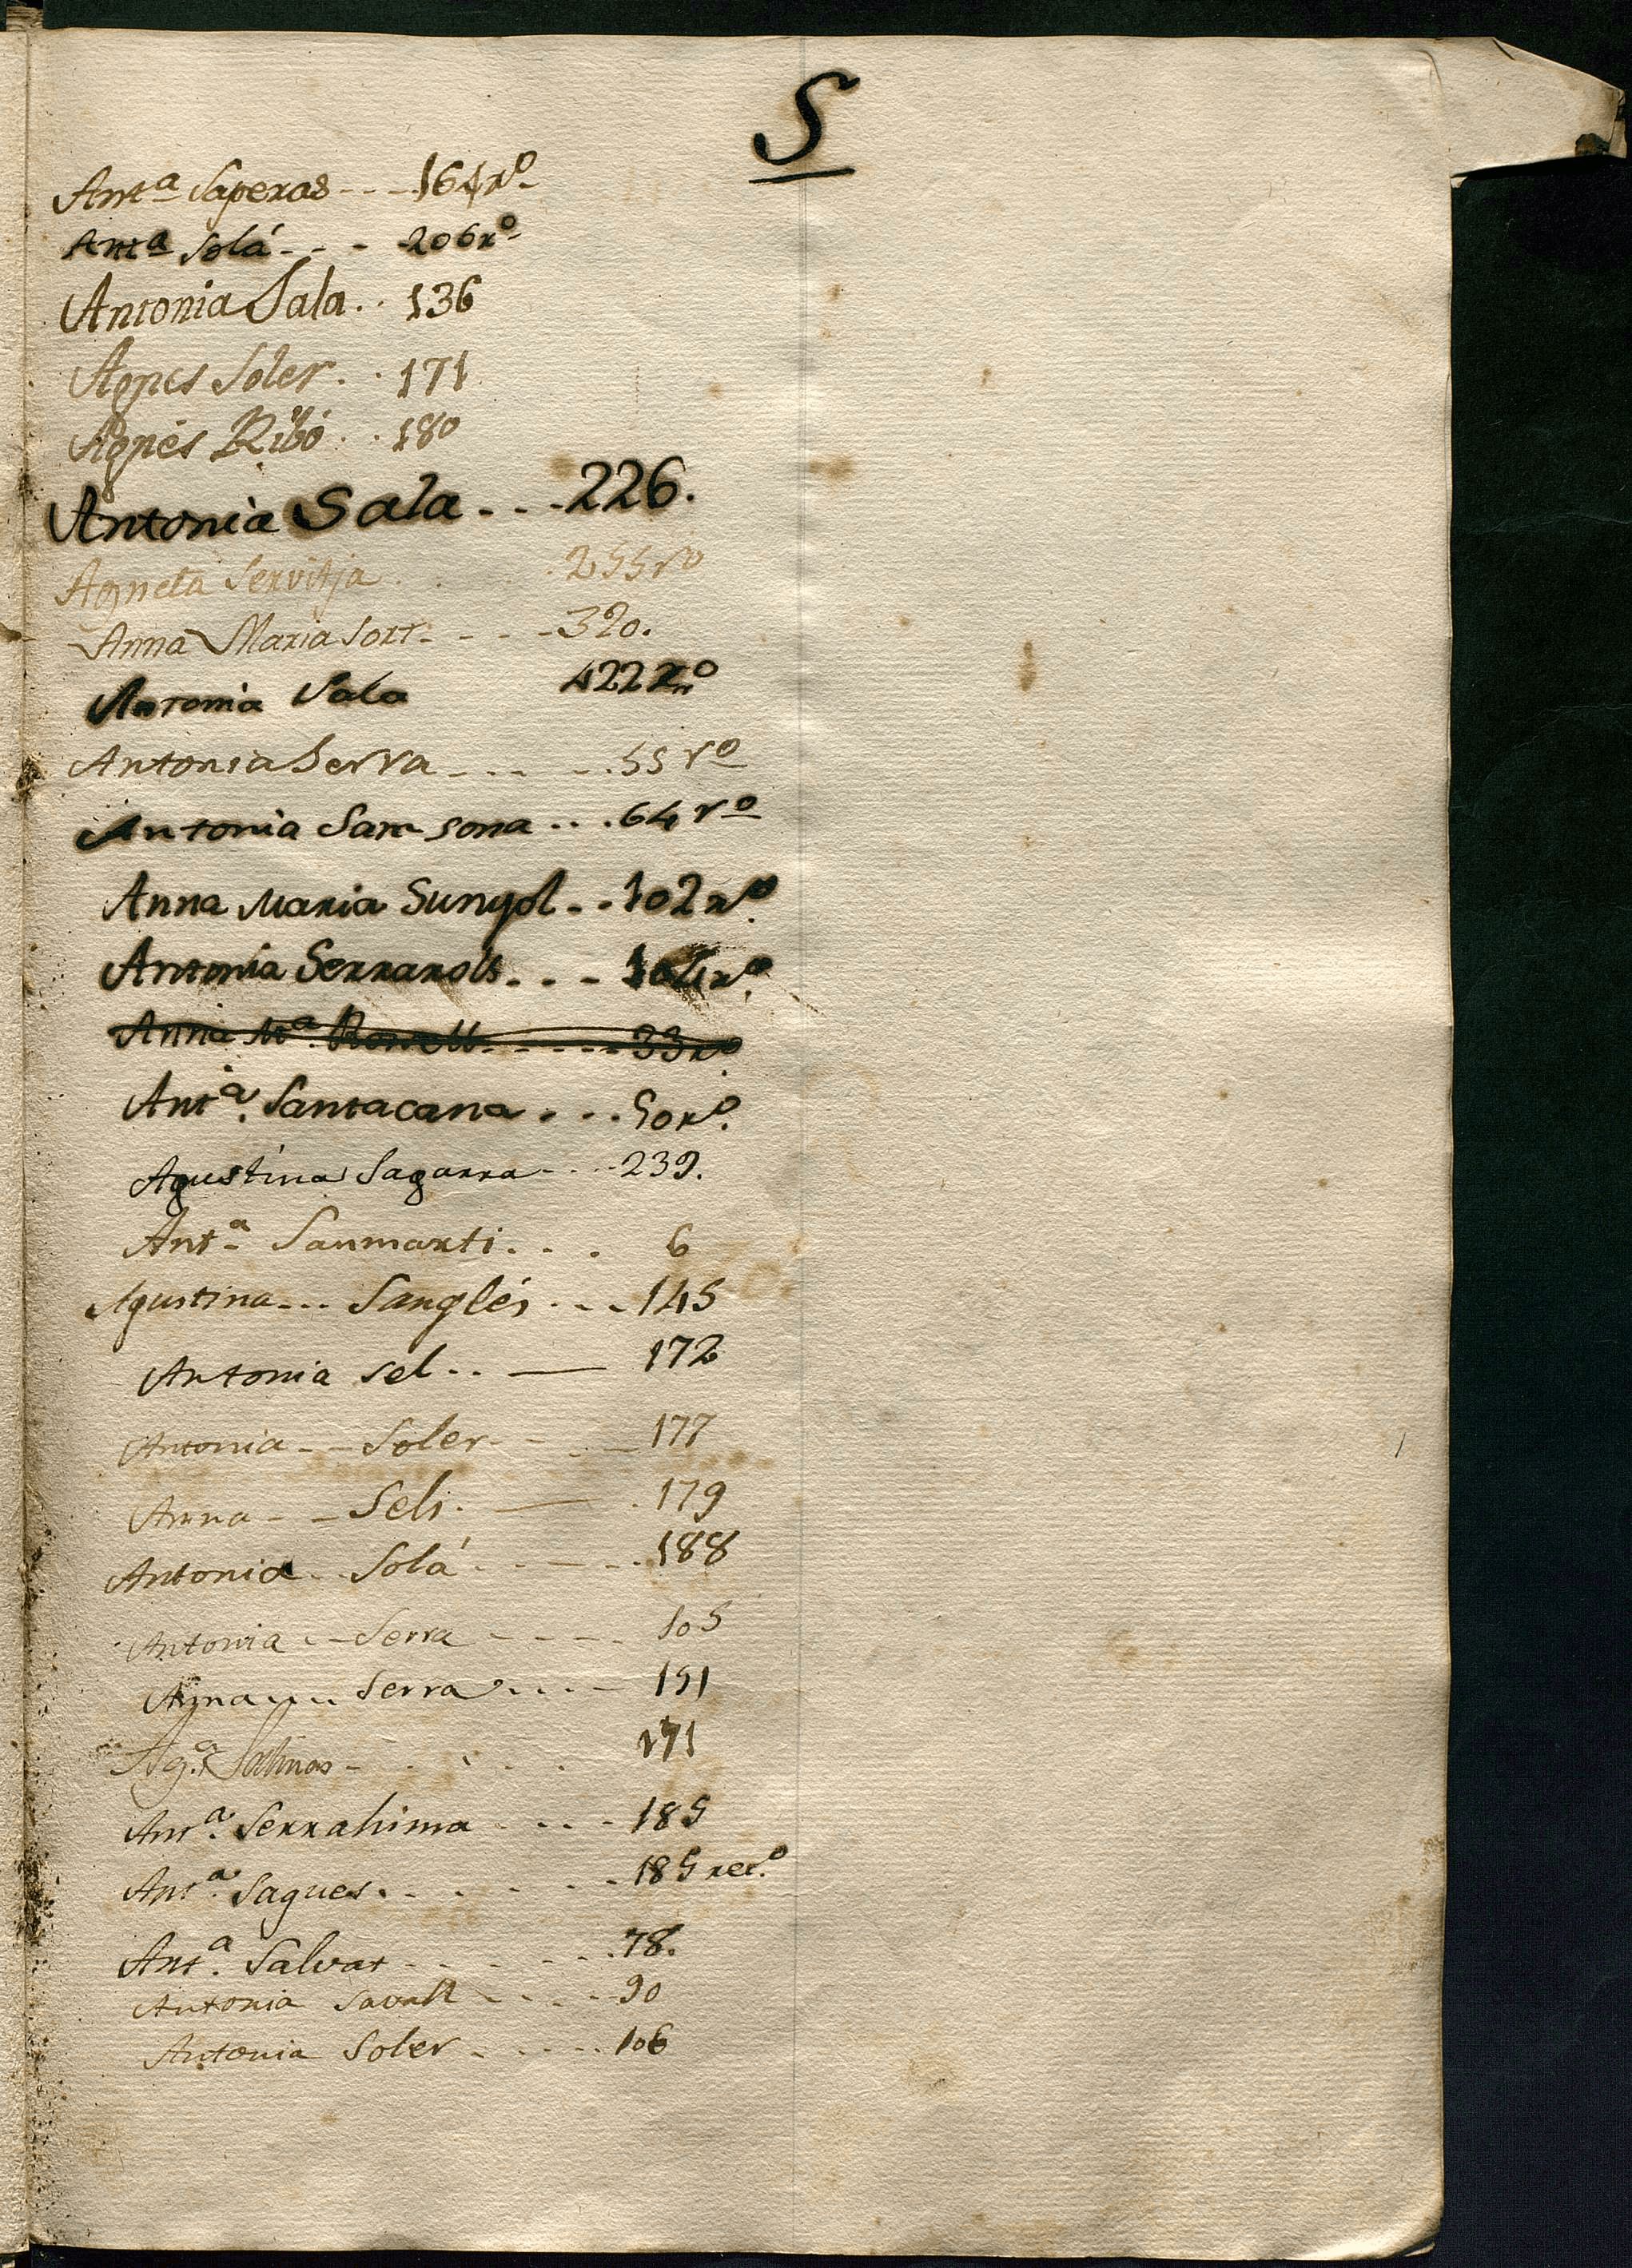 S
Ant.ª Saperas - - - 164 rº
Antª Solá - - - 206 rº
Antonia Sala . . 136
Agnes Soler . . 171
Agnés Ribó . . 180
Antonia Sala . . . 226.
Agneta Servitja . . . 255 rº
Anna Maria Sort - - - - 320.
Antonia Sala 422 rº
Antonia Serra - - - - . 55 rº
Antonia Samsona . . . 64 rº
Anna Maria Sunyol - - 102 rº
Antonia Serrarols - - - rº
Anna Mª 33 rº
Antª. Santacana . . . 50 rº.
Agustina Sagarra - - - 239.
Antª Sanmarti . . . 6
Agustina - - - Sanglés . . . 145
Antonia Sel . . — 172
Antonia - - Soler - - - - 177
Anna - - Sels . — . 179
Antonia . . Solá . - — - . 188
Antonia - - Serra - - - - 105
Anna . . . . Serra . . . - 191
Agª. Salinas - . . . . 171
Antª. Serrahima . . . - 185
Antª. Sagues . . . . . - 185 recº.
Antª. Salvat - - - - . 78.
Antonia Savall - - - - 90
Antonia Soler - - - - . 106